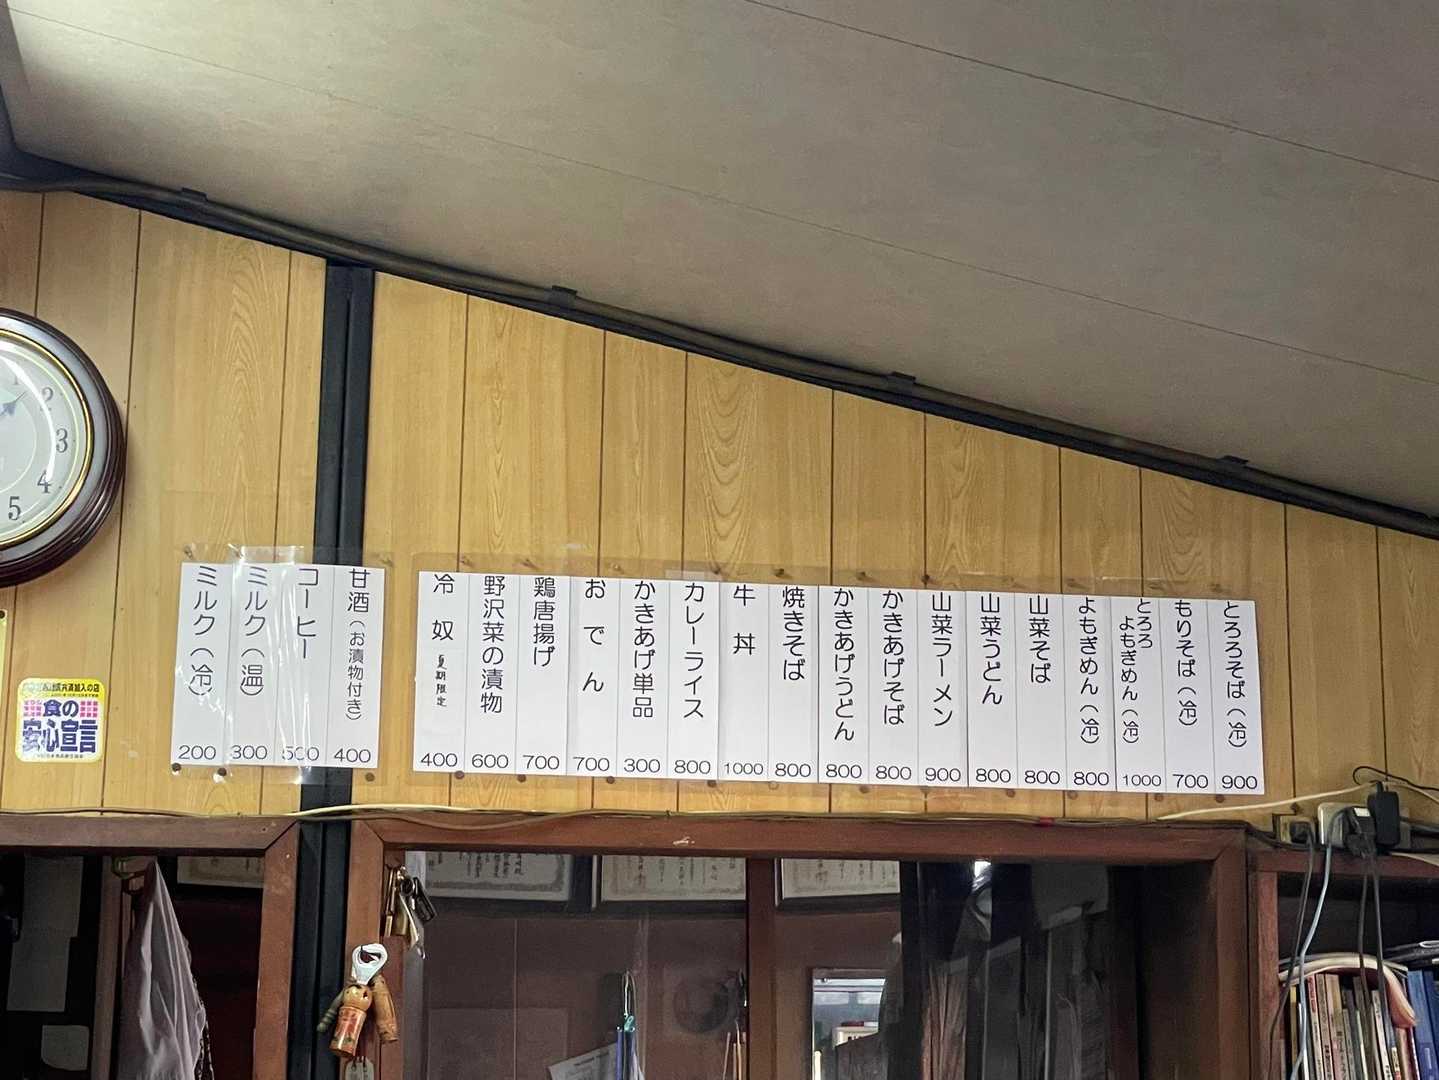 とろろそば（冷）
900
もりそば（冷）
700
とろろ
よもぎめん（冷）
1000
よもぎめん（冷）
800
山菜そば
800
山菜うどん
800
山菜ラーメン
900
かきあげそば
800
かきあげうどん
800
焼きそば
800
牛丼
1000
カレーライス
800
かきあげ単品
300
おでん
700
鶏唐揚げ
700
野沢菜の漬物
600
冷奴
夏期限定
400
甘酒（お漬物付き）
400
コーヒー
500
ミルク（温）
300
ミルク（冷）
200
食の
安心宣言
1
2
3
4
5